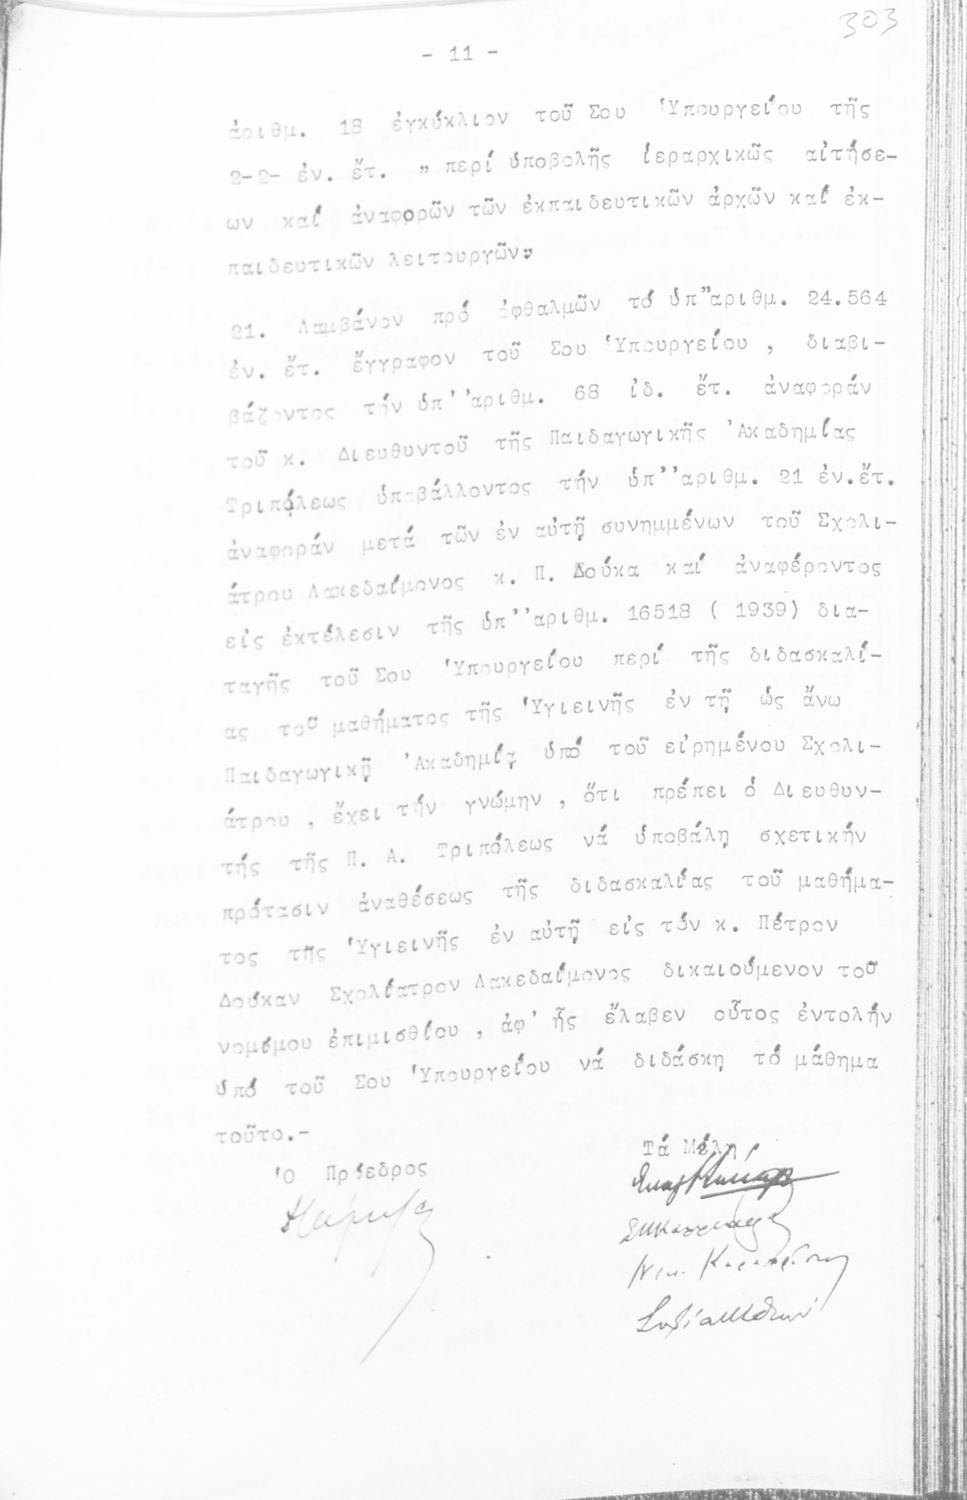 303
- 11 -
ἀριθμ. 18 ἐγκύκλιον τοῦ Σου Ὑπουργείου τῆς
2-2- ἐν. ἔτ. " περί ὑποβολῆς ἱεραρχικῶς αἰτήσε-
ων καί ἀναφορῶν τῶν ἐκπαιδευτικῶν ἀρχῶν καί ἐκ-
παιδευτικῶν λειτουργῶν"
21. Λαμβάνον πρό ὀφθαλμῶν τό ὑπ"αριθμ. 24.564
ἐν. ἔτ. ἔγγραφον τοῦ Σου Ὑπουργείου , διαβι-
βάζοντος τήν ὑπ''αριθμ. 68 ἰδ. ἔτ. ἀναφοράν
τοῦ κ. Διευθυντοῦ τῆς Παιδαγωγικῆς Ἀκαδημίας
Τριπόλεως ὑποβάλλοντος τήν ὑπ''αριθμ. 21 ἐν.ἔτ.
ἀναφοράν μετά τῶν ἐν αὐτῇ συνημμένων τοῦ Σχολι-
άτρου Λακεδαίμονος κ. Π. Δούκα καί ἀναφέροντος
εἰς ἐκτέλεσιν τῆς ὑπ''αριθμ. 16518 ( 1939) δια-
ταγῆς τοῦ Σου Ὑπουργείου περί τῆς διδασκαλί-
ας τοῦ μαθήματος τῆς Ὑγιεινῆς ἐν τῇ ὡς ἄνω
Παιδαγωγικῇ Ἀκαδημίᾳ ὑπό τοῦ εἰρημένου Σχολι-
άτρου , ἔχει τήν γνώμην , ὅτι πρέπει ὁ Διευθυν-
τής τῆς Π. Α. Τριπόλεως νά ὑποβάλῃ σχετικήν
πρότασιν ἀναθέσεως τῆς διδασκαλίας τοῦ μαθήμα-
τος τῆς Ὑγιεινῆς ἐν αὐτῇ εἰς τόν κ. Πέτρον
Δούκαν Σχολίατρον Λακεδαίμονος δικαιούμενον τοῦ
νομίμου ἐπιμισθίου , ἀφ' ἧς ἔλαβεν οὗτος ἐντολήν
ὑπό τοῦ Σου Ὑπουργείου νά διδάσκῃ τό μάθημα
τοῦτο.-
Ὁ Πρόεδρος
Τά Μέλη